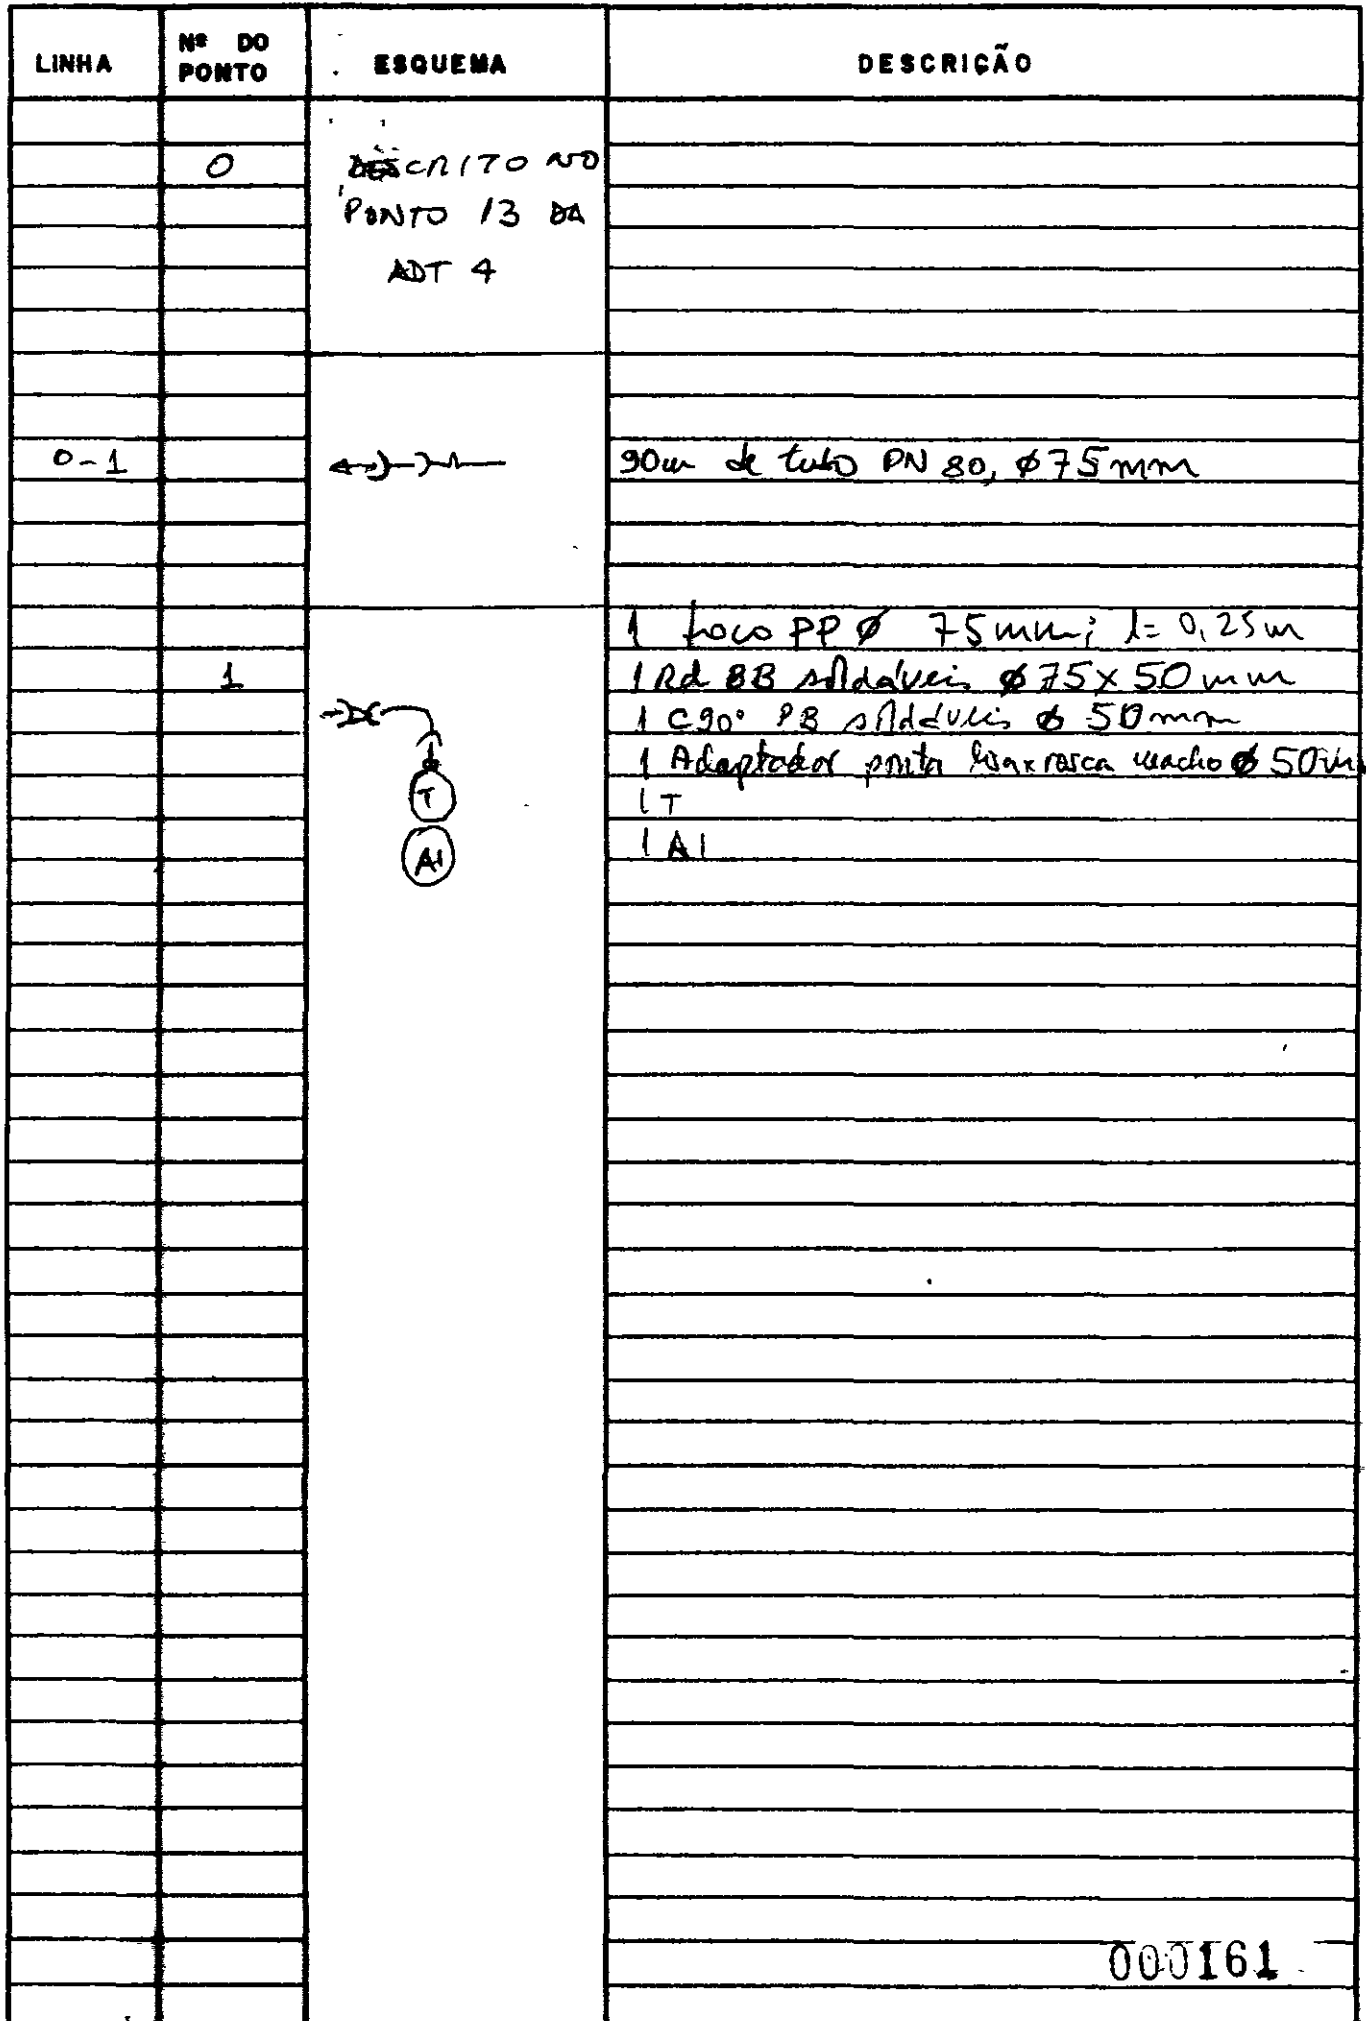 LINHA
Nº DO PONTO
ESQUEMA
DESCRIÇÃO
0
DESCRITO NO
PONTO 13 DA
ADT 4
0-1
90m de tubo PN 80, ø75mm
1 toco PP ø 75mm; l= 0,25m
1
1 Rd BB soldáveis ø75x50mm
1 C90° PB soldáveis ø 50mm
1 Adaptador ponta lisa x rosca macho ø 50m
T
1 T
AI
1 AI
000161